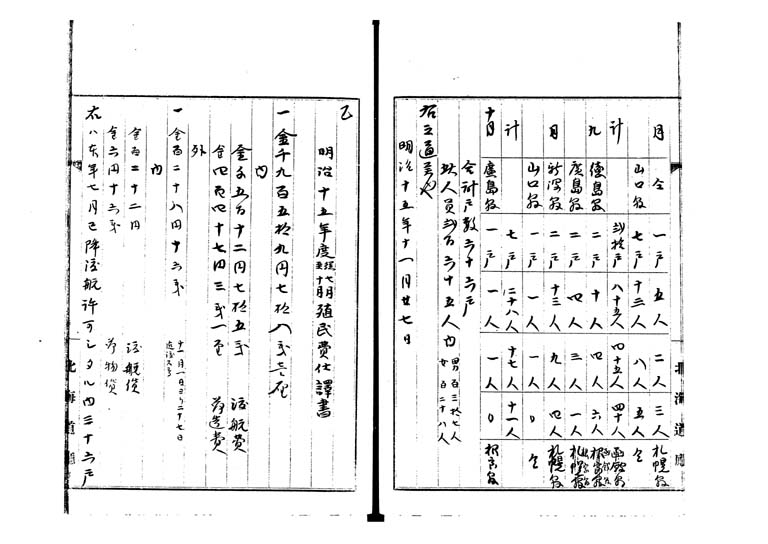 月 仝 一戸 五人 二人 三人 札幌縣
山口縣 七戸 十三人 八人 五人 仝
計 弐拾戸 八十五人 四十五人 四十人
九 徳島縣 二戸 十人 四人 六人 根室縣
廣島縣 二戸 四人 三人 一人 札幌縣
月 新潟縣 二戸 十三人 九人 四人 札幌縣
山口縣 一戸 一人 一人 〇 仝
計 七戸 二十八人 十七人 十一人
十月 廣島縣 一戸 一人 一人 〇 根室縣
合計戸数六十六戸
此人員弐百六十五人 内 男百三拾七人 女百二十八人
右之通
明治十五年十一月廿七日
北海道廳
乙
明治十五年度 従七月至十月 殖民費仕譯書
一金千九百五拾九円七拾八戔
内
金千五百十二円七拾五戔 渡航費
金四百四十七円三戔 荷造費
外
一金百二十八円十六戔
内
金百二十二円 渡航費
金六円十六戔 荷物費
右ハ本年七月已降渡航許可シタル内三十六戸
北海道廳